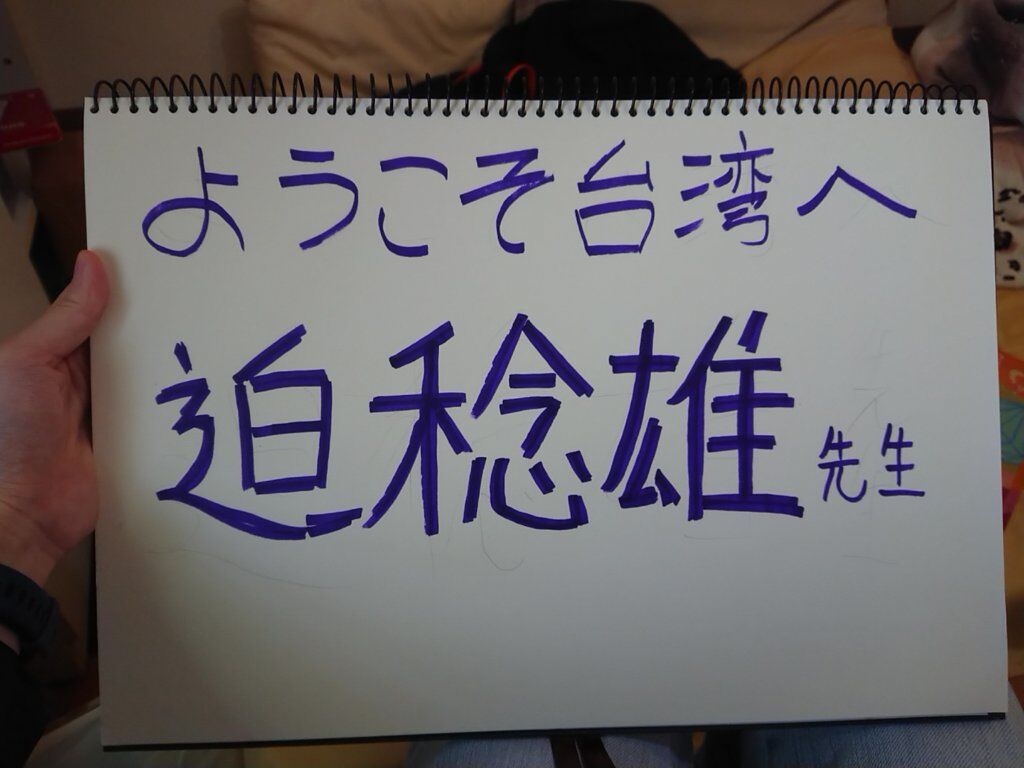 ようこそ台湾へ
迫稔雄先生